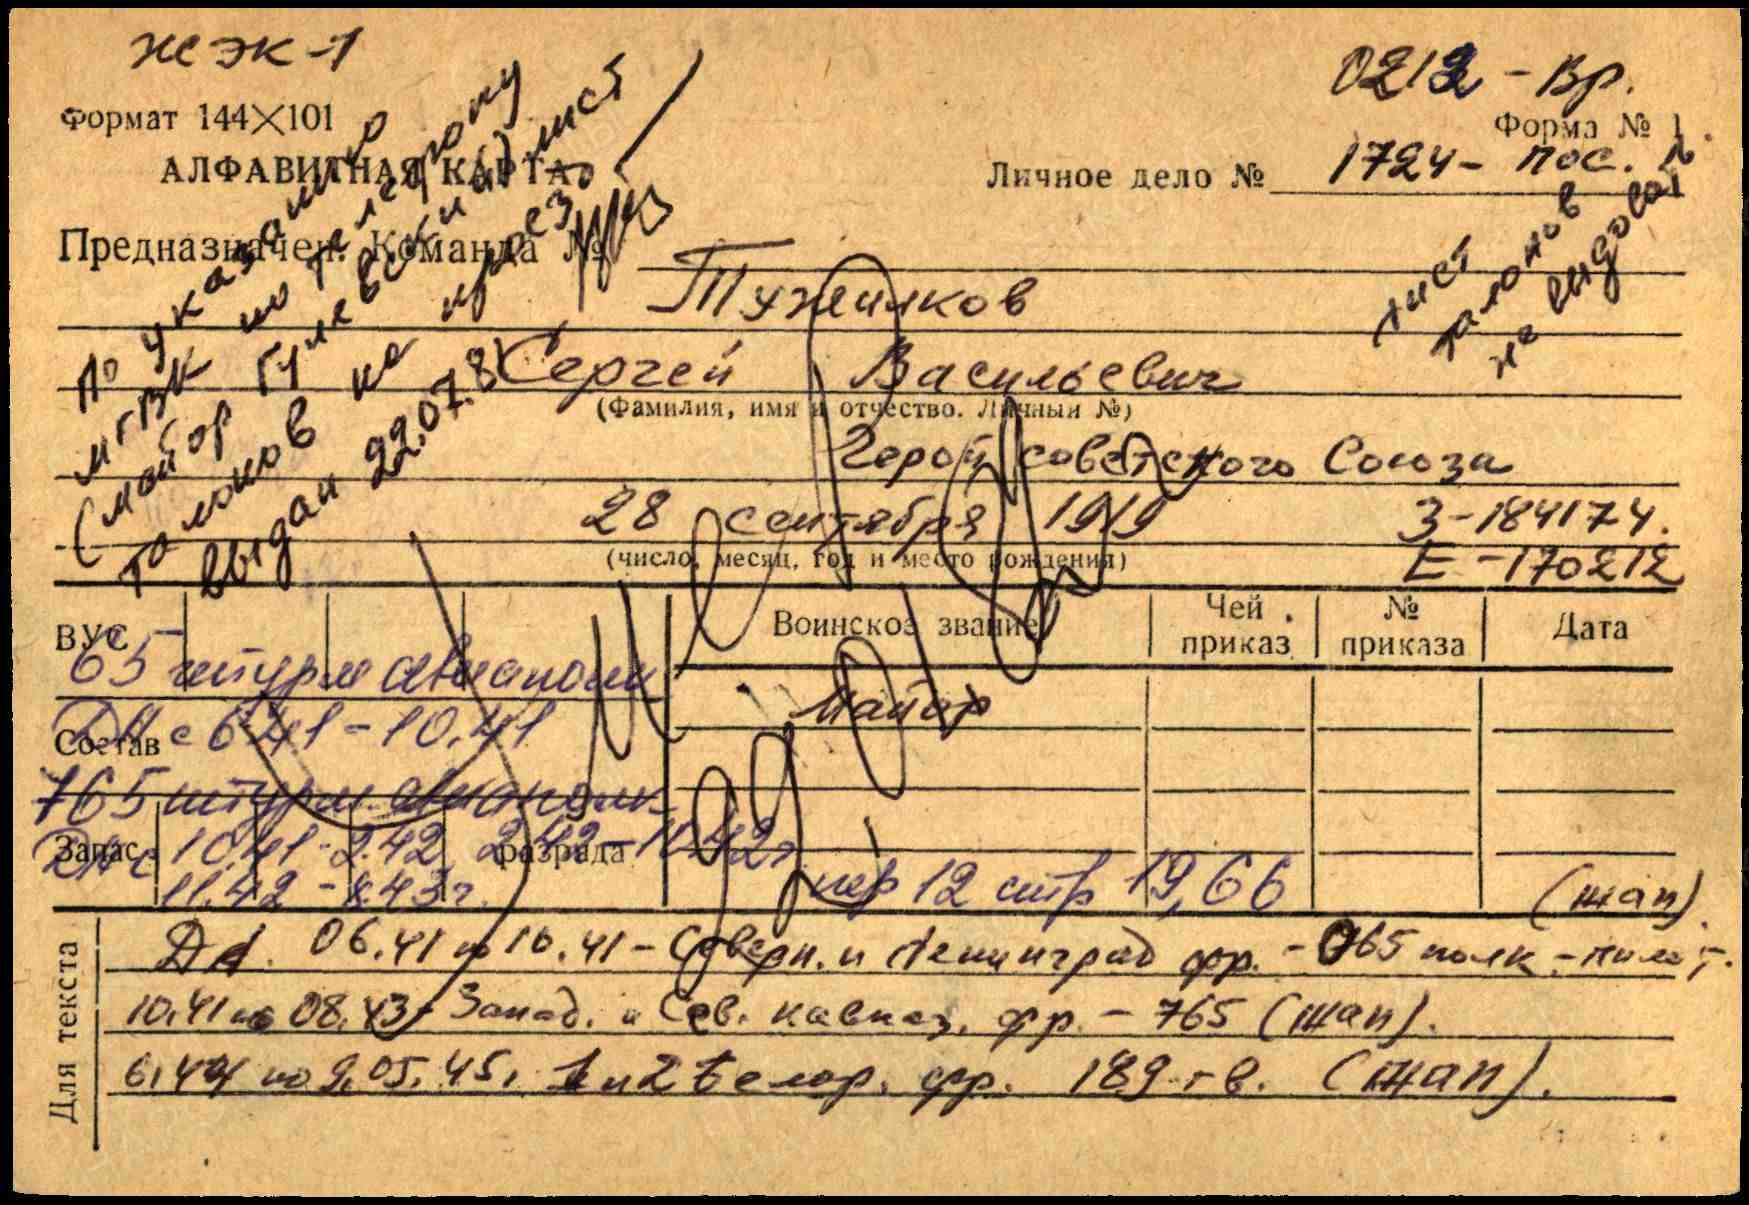 ЖЭК-1
0212 - Вр.
Формат 144×101
Форма № 1
АЛФАВИТНАЯ КАРТА
Личное дело № 1724 - пос.
Предназначен. Команда №
лист
талонов
не выдовать
По указанию
МГВК по телефону
(майор Гулевский) лист
талонов на проезд
выдан 22.07.81
Тужилков
Сергей Васильевич
(Фамилия, имя и отчество. Личный №)
Герой Советского Союза
28 сентября 1919
З-184174.
Е-170212
(число, месяц, год и место рождения)
ВУС
65 штурм авиаполк
Состав
ДА с 6.41-10.41
765 штурм авиаполк
Запас
разряда
ДА с 10.41-2.42 2.42-10.42г
11.42-8.43г.
Воинское звание
Чей приказ
№ приказа
Дата
Майор
пер 12 стр 19,66
(шап).
Для текста
ДА. 06.41 по 10.41 - Северн. и Ленинград фр. - 65 полк - пилот.
10.41 по 08.43 - Запад. и Сев. кавказ. фр. - 765 (шап).
6.44 по 9.05.45. 1 и 2 Белор. фр. 189 гв. (шап).